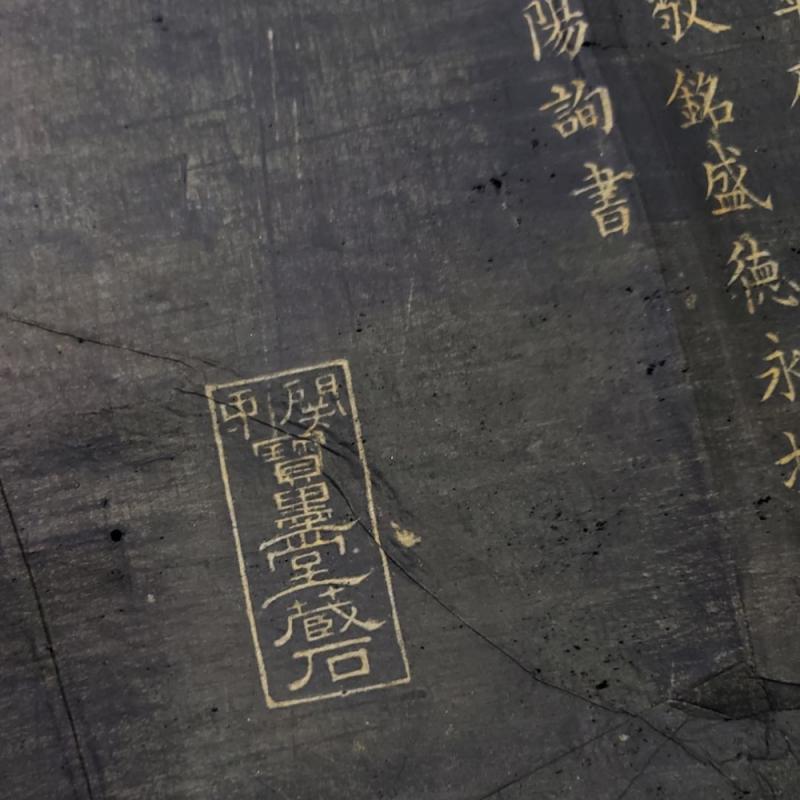 敬銘盛徳永
陽詢書
關中寶墨堂藏石